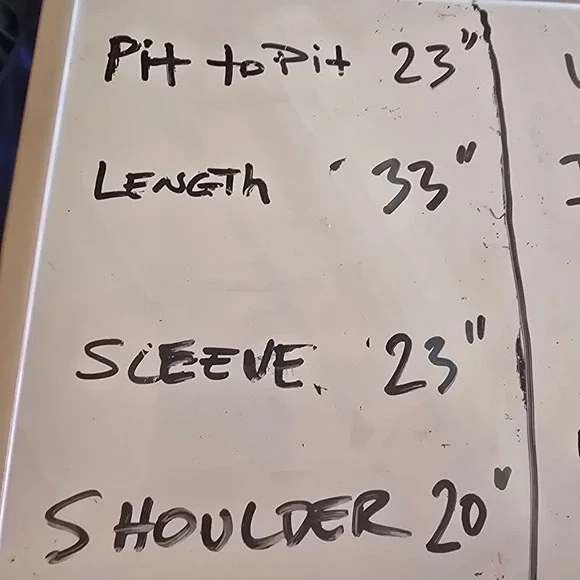 Pit to Pit 23"
LENGTh 33"
SLEEVE 23"
SHOULDER 20"